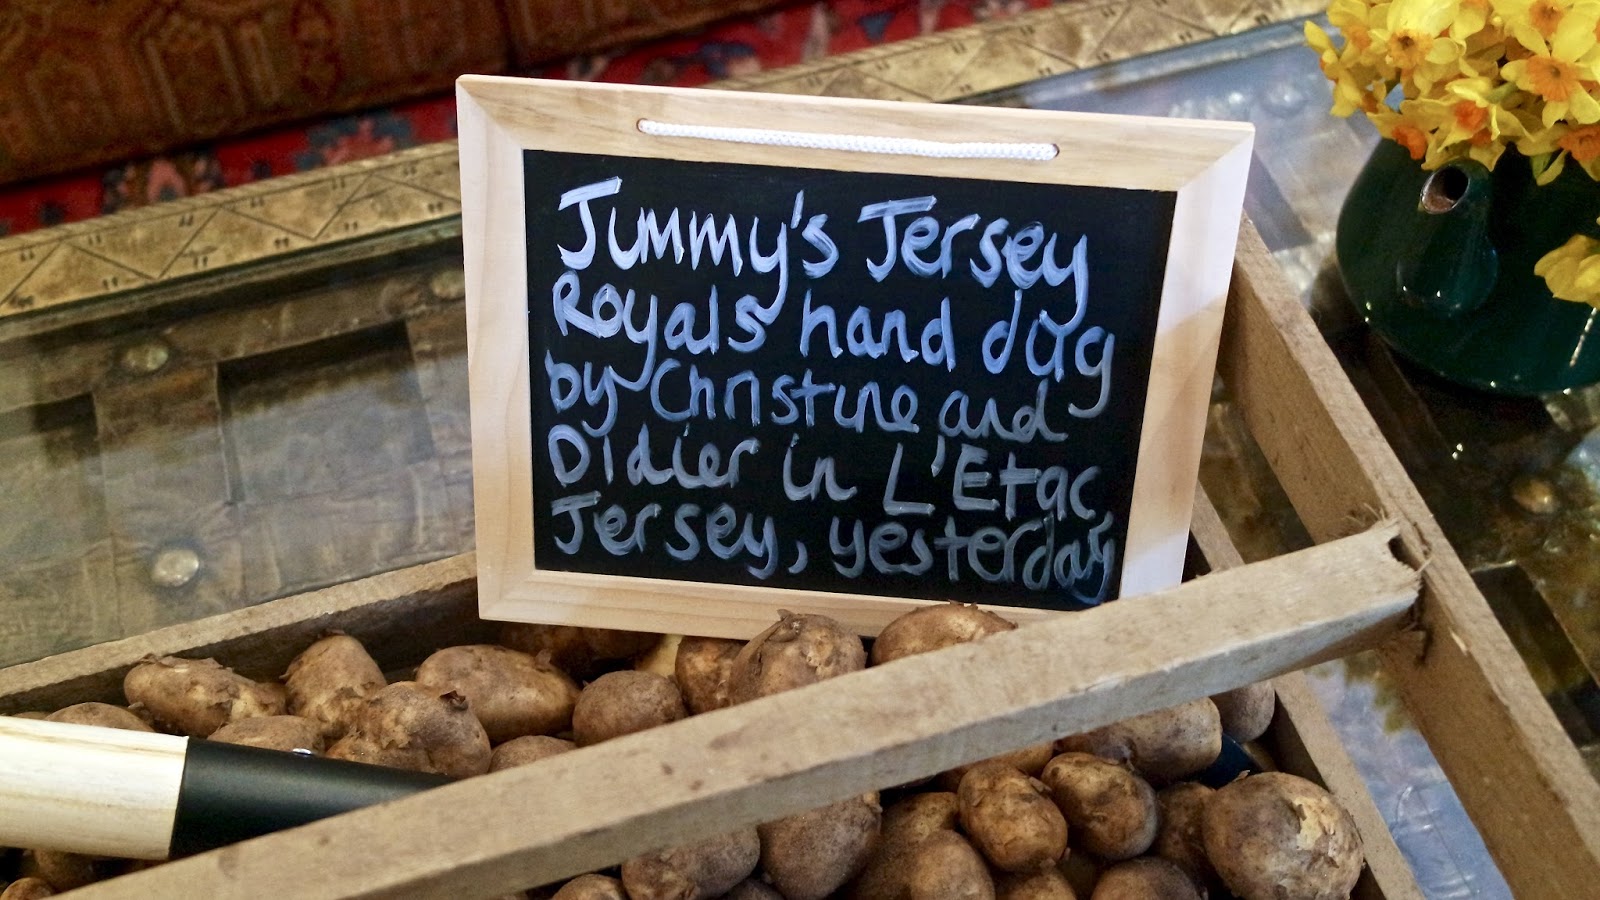 Jimmy's Jersey
Royals hand dug
by Christine and
Didier in L'Etac
Jersey, yesterday